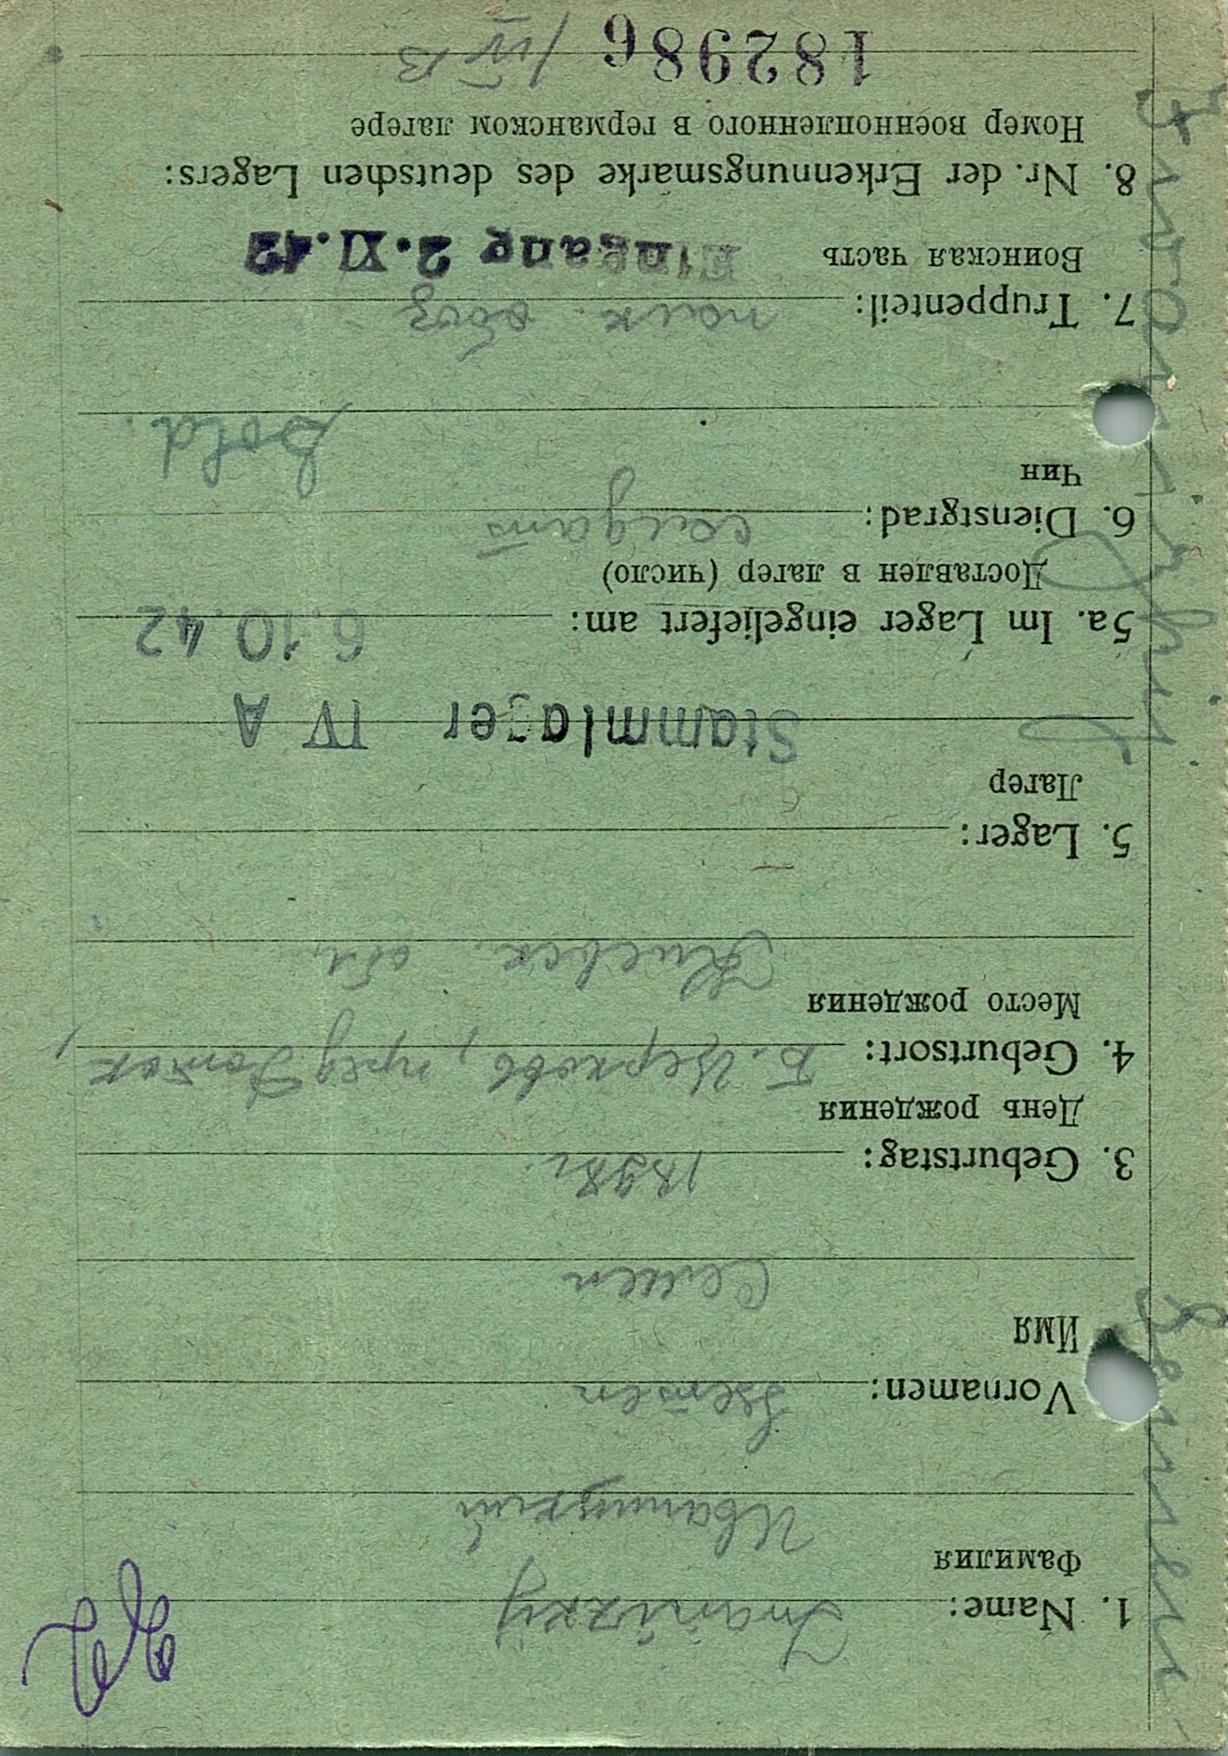 1. Name: Iwanizkij
Фамилия
Иваницкий
Vornamen: Semen
Имя
Семен
3. Geburtstag: 1898г.
День рождения
4. Geburtsort: Б. Церковь, пред.
Место рождения
Киевск. обл.
5. Lager:
Лагер
Stammlager IV A
5a. Im Lager eingeliefert am: 6.10.42
Доставлен в лагер (число)
6. Dienstgrad: солдат
Чин
Sold.
7. Truppenteil: полк. обоз
Воинская часть
Eingang 2.XI.42
8. Nr. der Erkennungsmarke des deutschen Lagers:
Номер военнопленного в германском лагере
182986 /IV B